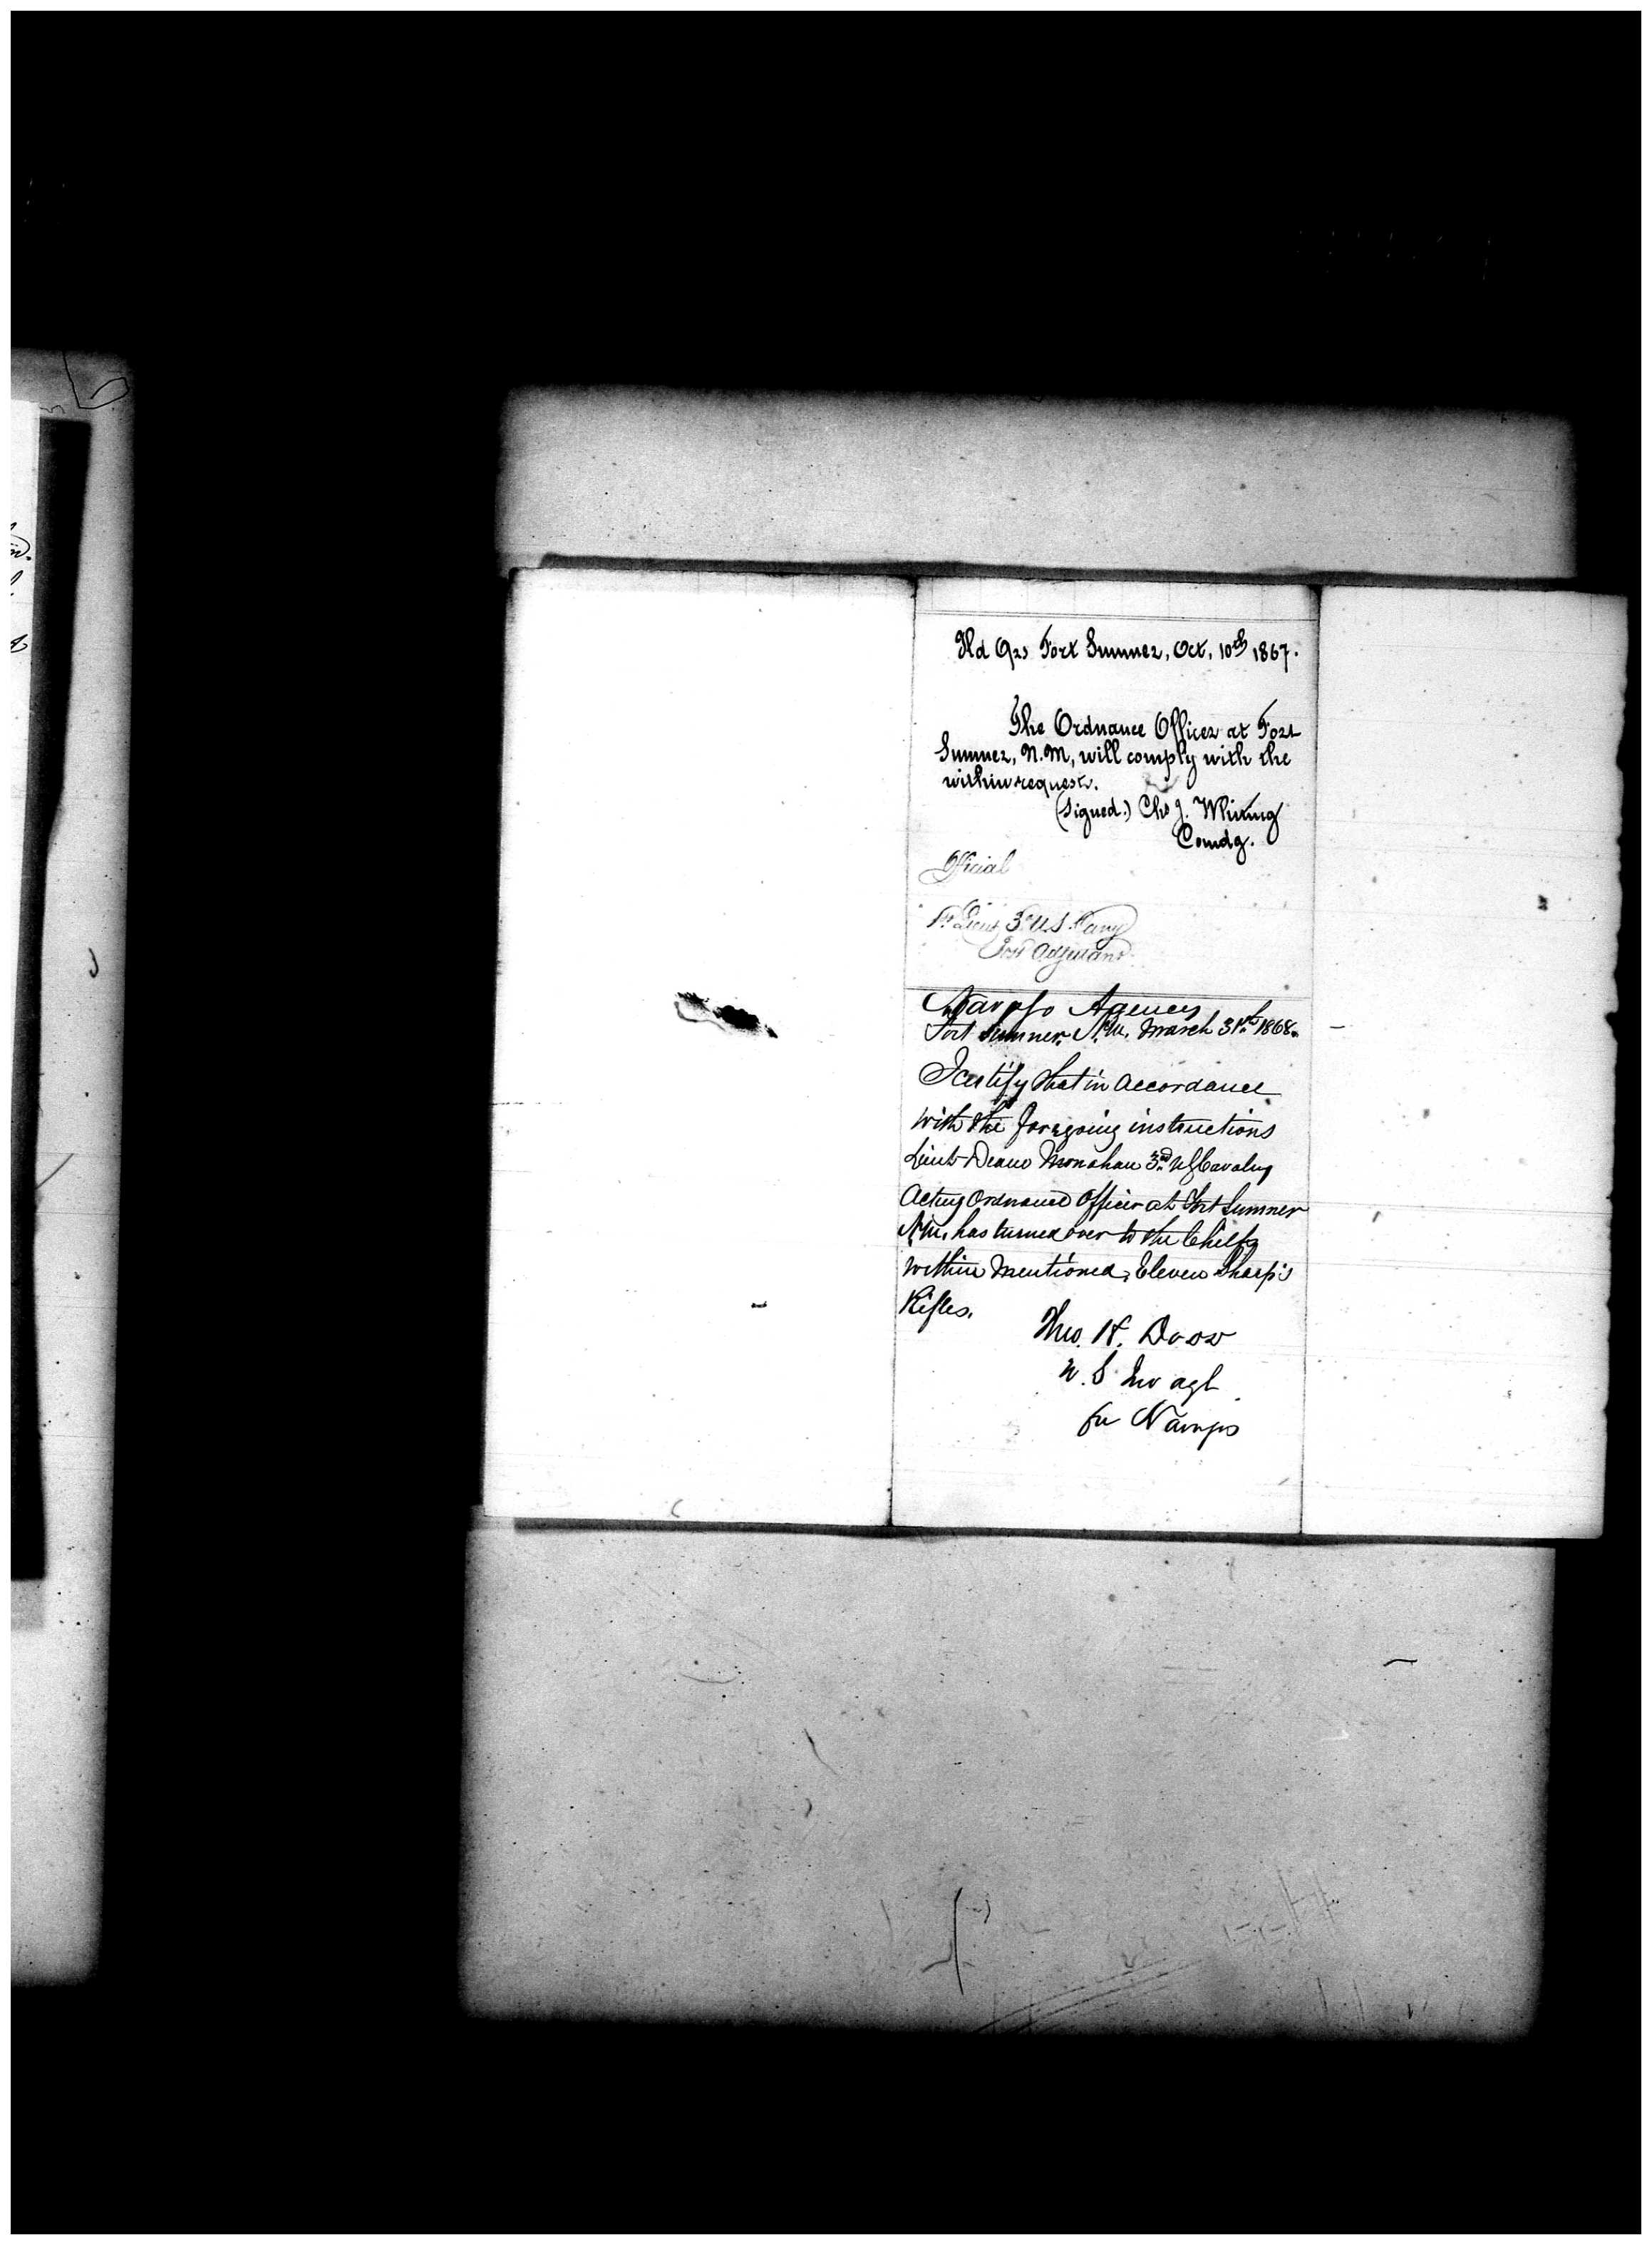 Hd Qrs Fort Sumner, Oct, 10th 1867.
The Ordnance Officer at Fort
Sumner, N.M, will comply with the
within request.
(Signed.) Chs J. Whiting
Comdg.
Official
1st Lieut 3d U.S. Cavy
Post Adjutant
Navajo Agency
Fort Sumner N.M. March 31st 1868.
I certify that in accordance
with the foregoing instructions
Lieut Deane Monahan 3rd US Cavalry
Acting Ordnance Officer at Fort Sumner
N.M. has turned over to the Chiefs
within mentioned, Eleven Sharp's
Rifles.
Theo. H. Dodd
U.S Ind agt
for Navajos